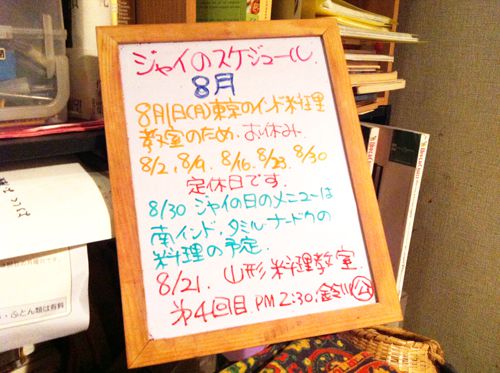 ジャイのスケジュール
8月
8月1日(月)東京のインド料理
教室のため、お休み、
8/2、8/9、8/16、8/23、8/30
定休日です.
8/30 ジャイの日のメニューは
南インド、タミルナードゥの
料理の予定.
8/21. 山形料理教室.
第4回目. PM2:30. 鈴川公
・ふとん類は有料